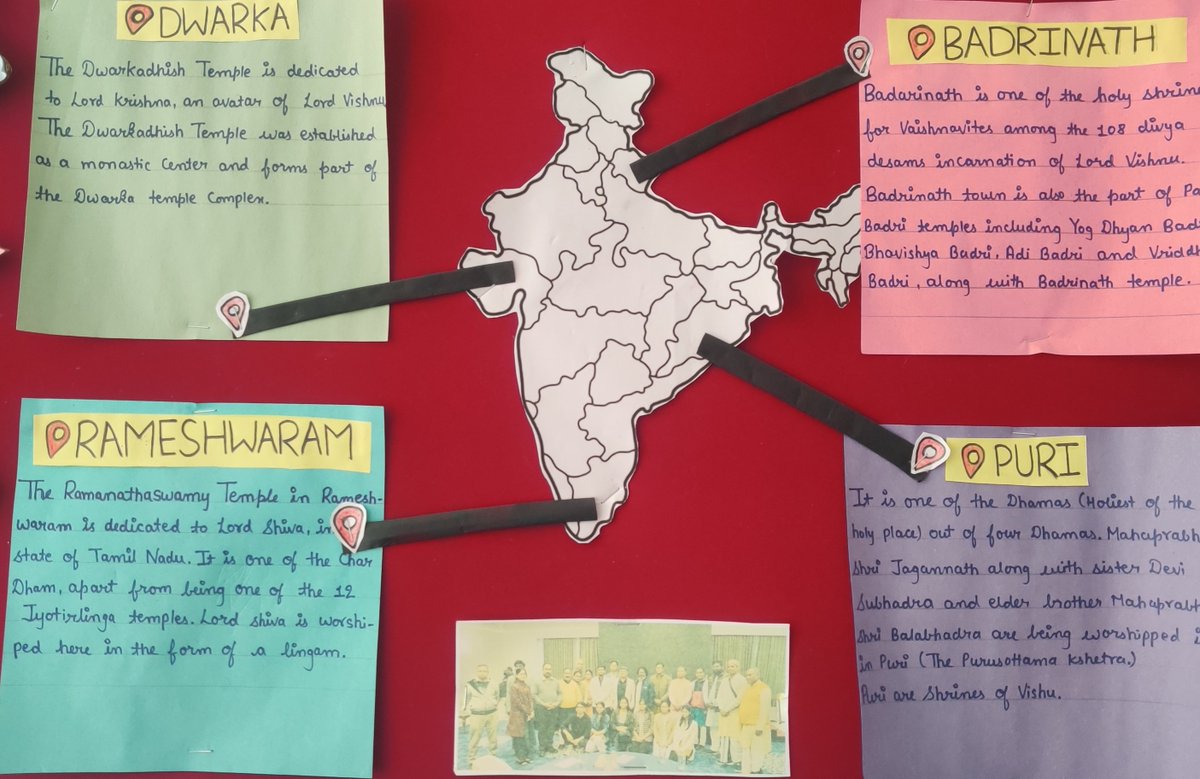 DWARKA
The Dwarkadhish Temple is dedicated
to Lord Krishna, an avatar of Lord Vishnu
The Dwarkadhish Temple was established
as a monastic Center and forms part of
the Dwarka temple Complex.
BADRINATH
Badarinath is one of the holy shrine
for Vaishnavites among the 108 divya
desams incarnation of Lord Vishnu.
Badrinath town is also the part of Pa
Badri temples including Yog Dhyan Bad
Bhavishya Badri, Adi Badri and Vriddh
Badri, along with Badrinath temple.
RAMESHWARAM
The Ramanathaswamy Temple in Ramesh-
waram is dedicated to Lord Shiva, in
state of Tamil Nadu. It is one of the Char
Dham, apart from being one of the 12
Jyotirlinga temples. Lord Shiva is worshi-
ped here in the form of a lingam.
PURI
It is one of the Dhamas (Holiest of the
holy place) out of four Dhamas. Mahaprabh
Shri Jagannath along with sister Devi
Subhadra and elder brother Mahaprabh
Shri Balabhadra are being worshipped i
in Puri (The Purusottama Kshetra.)
Puri are Shrines of Vishu.